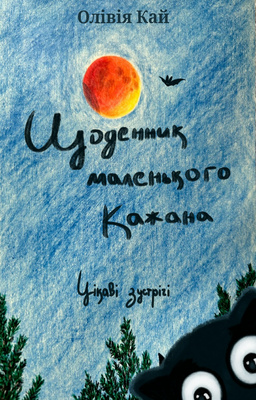 Олівія Кай
Щоденник
маленького
Кажана
Цікаві зустрічі